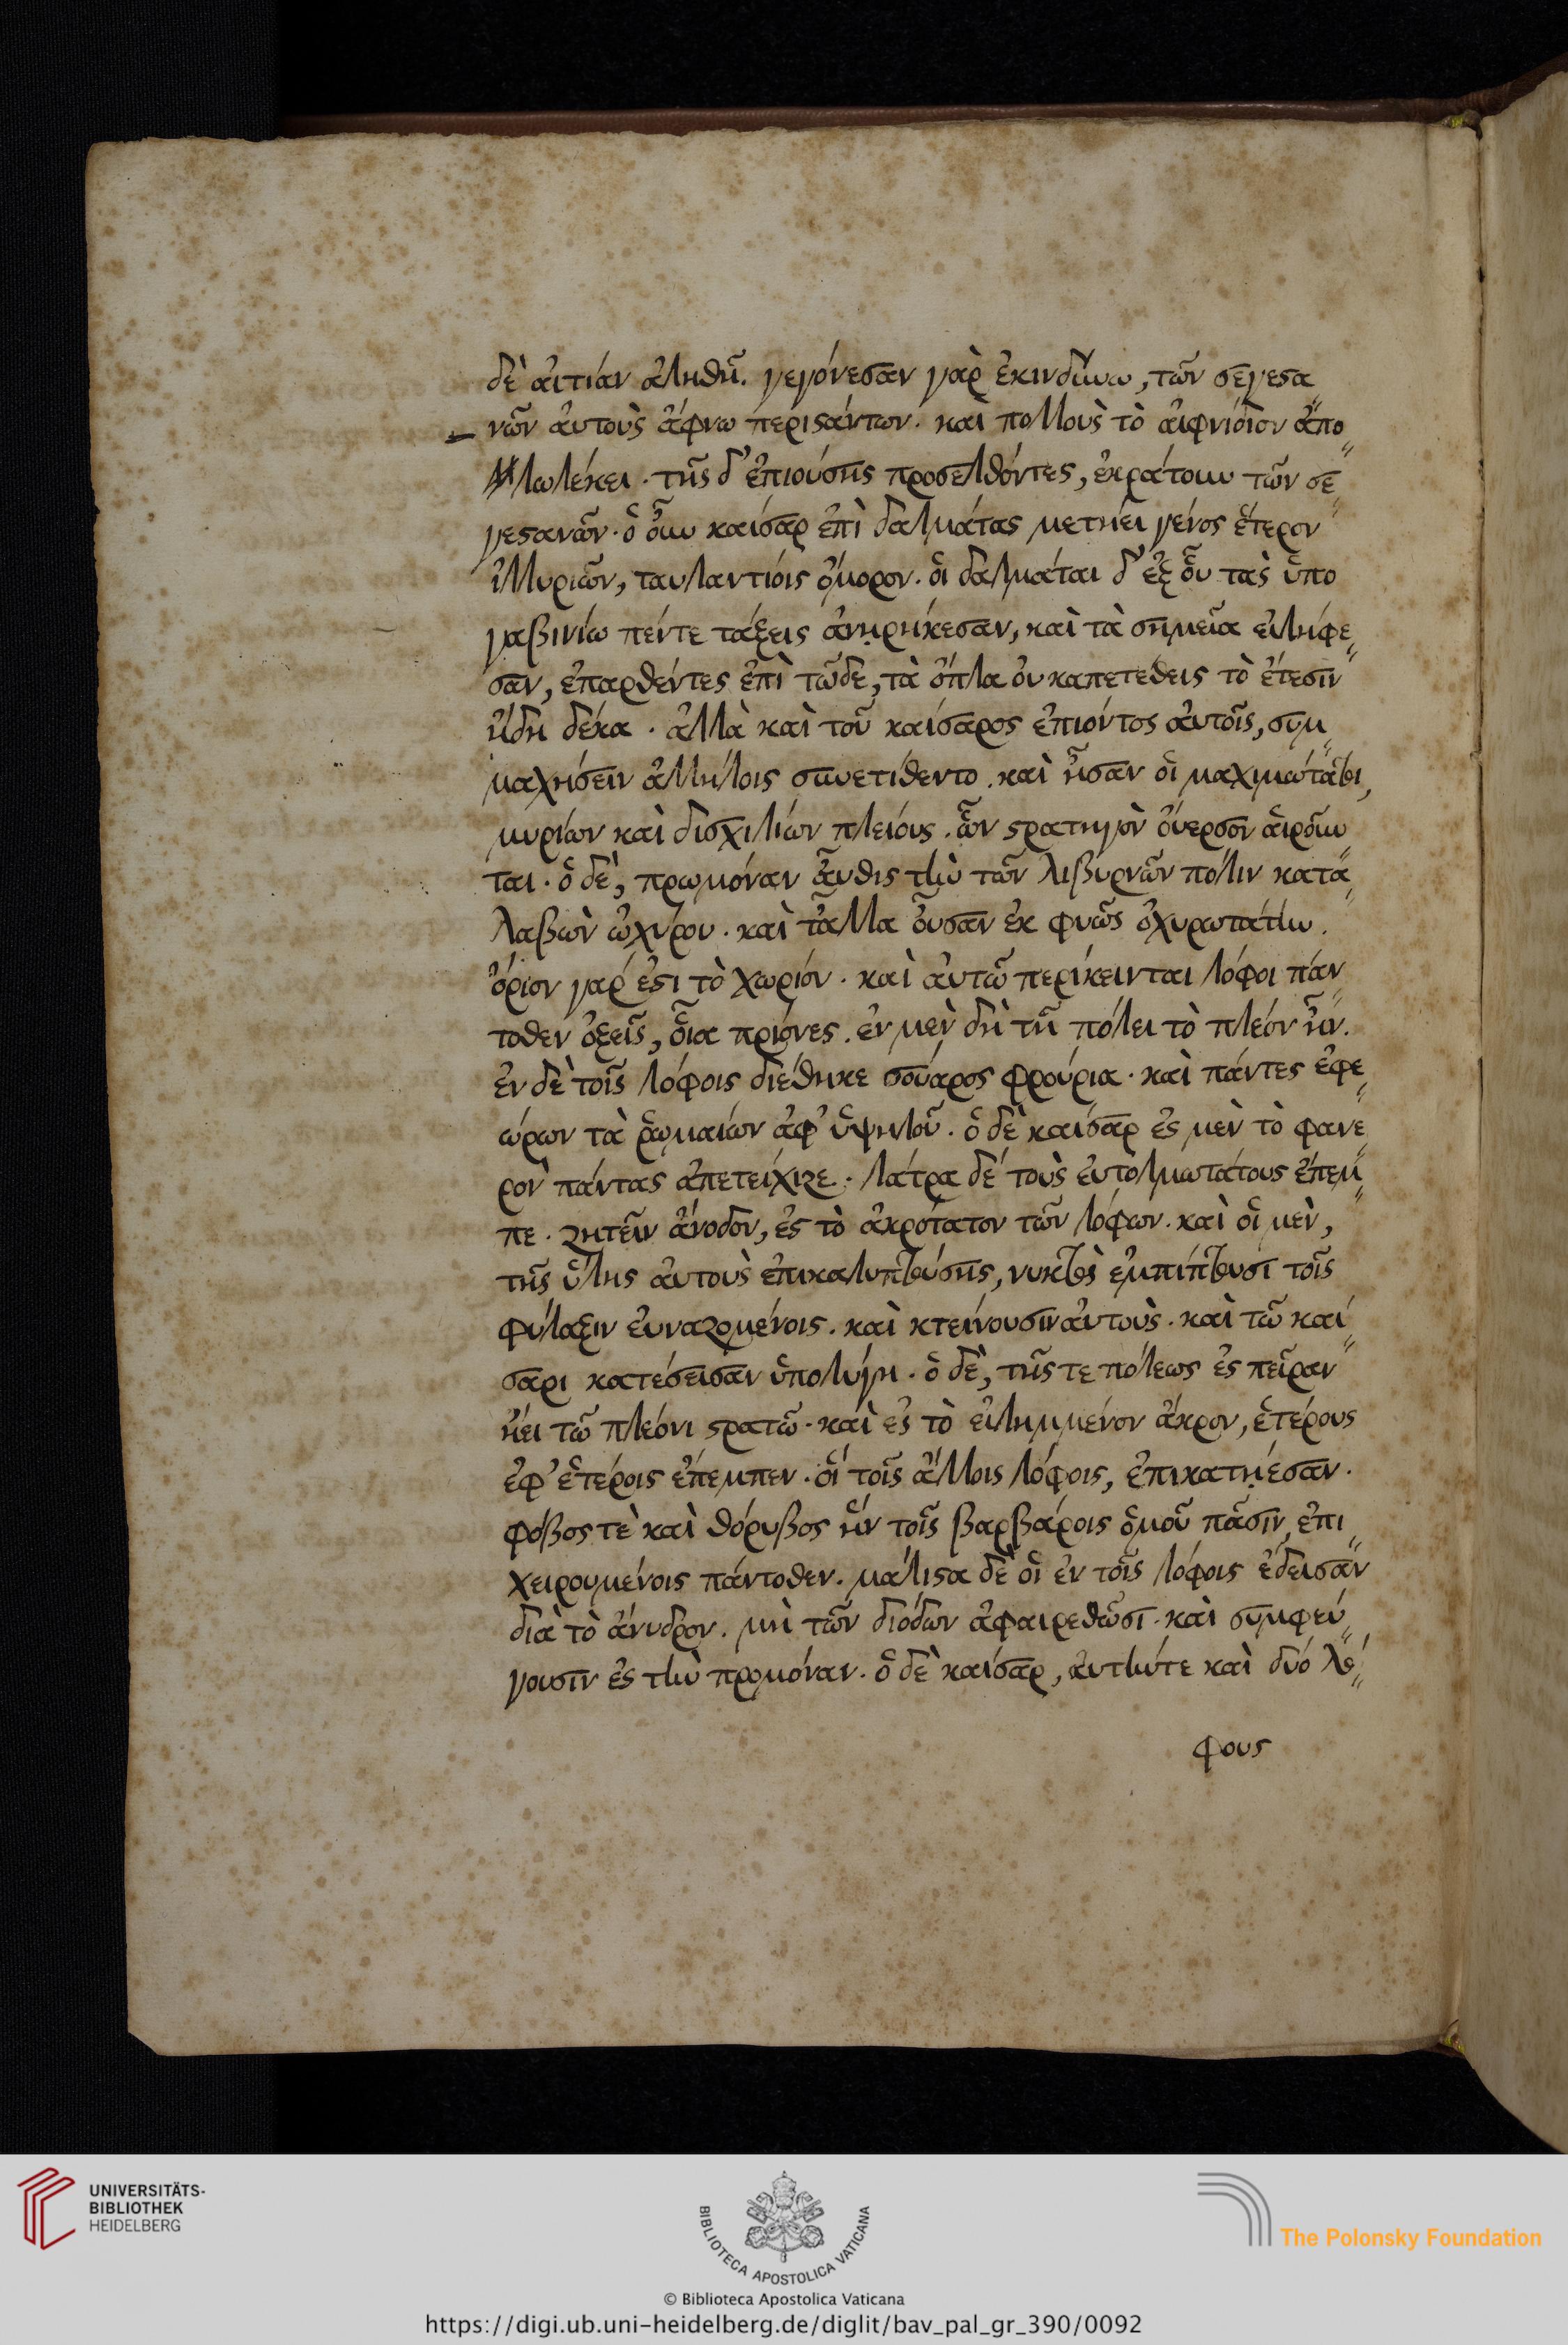 δὲ αἰτίαν ἀληθῆ. γεγόνεσαν γὰρ ἐκινδύνω, τῶν σεγεσα
νῶν αὐτοὺς ἄφνω περιστάντων. καὶ πολλοὺς τὸ αἰφνίδιον ἀπο
λωλέκει. τῆς δ' ἐπιούσης προσελθόντες, ἐκράτουν τῶν σε
γεσανῶν. ὁ οὖν καίσαρ ἐπὶ δαλμάτας μετήει γένος ἕτερον
ἰλλυριῶν, ταυλαντίοις ὅμορον. οἱ δαλμάται δ' ἐξ οὗ τὰς ὑπο
γαβινίω πέντε τάξεις ἀνῃρήκεσαν, καὶ τὰ σημεῖα εἰλήφε
σαν, ἐπαρθέντες ἐπὶ τῶδε, τὰ ὅπλα οὐκαπετέθεις τὸ ἔτεσιν
ἤδη δέκα. ἀλλὰ καὶ τοῦ καίσαρος ἐπιόντος αὐτοῖς, συμ
μαχήσειν ἀλλήλοις συνετίθεντο. καὶ ἦσαν οἱ μαχιμώτατοι,
μυρίων καὶ δισχιλίων πλείους. ὧν στρατηγὸν οὔερσον αἱροῦν
ται. ὁ δὲ, πρωμόναν αὖθις τὴν τῶν λιβυρνῶν πόλιν κατα
λαβὼν ὠχύρου. καὶ τἆλλα οὖσαν ἐκ φυῶς ὀχυρωτάτην.
ὄριον γάρ ἐστι τὸ χωρίον. καὶ αὐτῶ περίκεινται λόφοι πάν
τοθεν ὀξεῖς, οἷα πρίονες. ἐν μὲν δὴ τῆ πόλει τὸ πλέον ἦν.
ἐν δὲ τοῖς λόφοις διέθηκε σούαρος φρούρια. καὶ πάντες ἐφε
ώρων τὰ ῥωμαίων ἀφ' ὑψηλοῦ. ὁ δὲ καίσαρ ἐς μὲν τὸ φανε
ρὸν πάντας ἀπετείχιζε. λάτρα δὲ τοὺς εὐτολμωτάτους ἔπεμ
πε. ζητεῖν ἄνοδον, ἐς τὸ ἀκρότατον τῶν λόφων. καὶ οἱ μὲν,
τῆς ὕλης αὐτοὺς ἐπικαλυπτούσης, νυκτὸς ἐμπίπτουσι τοῖς
φύλαξιν εὐναζομένοις. καὶ κτείνουσιν αὐτοὺς. καὶ τῶ καί
σαρι κατέσεισαν ὑπολύγη. ὁ δὲ, τῆς τε πόλεως ἐς πεῖραν
ἤει τῶ πλέονι στρατῶ. καὶ ἐς τὸ εἰλημμένον ἄκρον, ἑτέρους
ἐφ' ἑτέροις ἔπεμπεν. οἵ τοῖς ἄλλοις λόφοις, ἐπικατῄεσαν.
φόβος τὲ καὶ θόρυβος ἦν τοῖς βαρβάροις ὁμοῦ πᾶσιν, ἐπι
χειρουμένοις πάντοθεν. μάλιστα δὲ οἱ ἐν τοῖς λόφοις ἔδεισαν
διὰ τὸ ἄνυδρον. μὴ τῶν διόδων ἀφαιρεθῶσι. καὶ συμφεύ
γουσιν ἐς τὴν προμόναν. ὁ δὲ καίσαρ, αὐτήντε καὶ δύο λό
φους
UNIVERSITÄTS-
BIBLIOTHEK
HEIDELBERG
BIBLIOTECA APOSTOLICA VATICANA
The Polonsky Foundation
© Biblioteca Apostolica Vaticana
https://digi.ub.uni-heidelberg.de/diglit/bav_pal_gr_390/0092